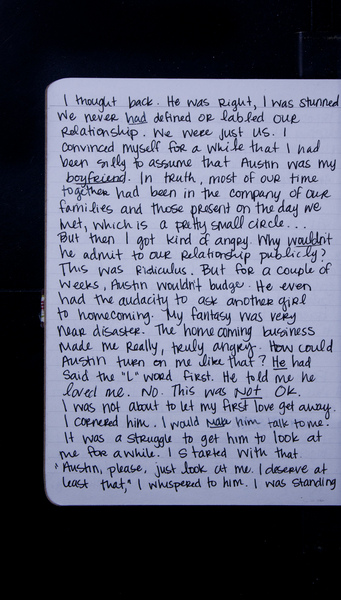 I thought back. He was right, I was stunned
We never had defined or labled our
relationship. We were just us. I
convinced myself for a while that I had
been silly to assume that Austin was my
boyfriend. In truth, most of our time
together had been in the company of our
families and those present on the day we
met, which is a pretty small circle...
But then I got kind of angry. Why wouldn't
he admit to our relationship publicly?
This was ridiculus. But for a couple of
weeks, Austin wouldn't budge. He even
had the audacity to ask another girl
to homecoming. My fantasy was very
near disaster. The homecoming business
made me really, truly angry. How could
Austin turn on me like that? He had
said the "L" word first. He told me he
loved me. No. This was Not Ok.
I was not about to let my first love get away.
I cornered him. I would make him talk to me.
It was a struggle to get him to look at
me for a while. I started with that.
"Austin, please, just look at me. I deserve at
least that," I whispered to him. I was standing